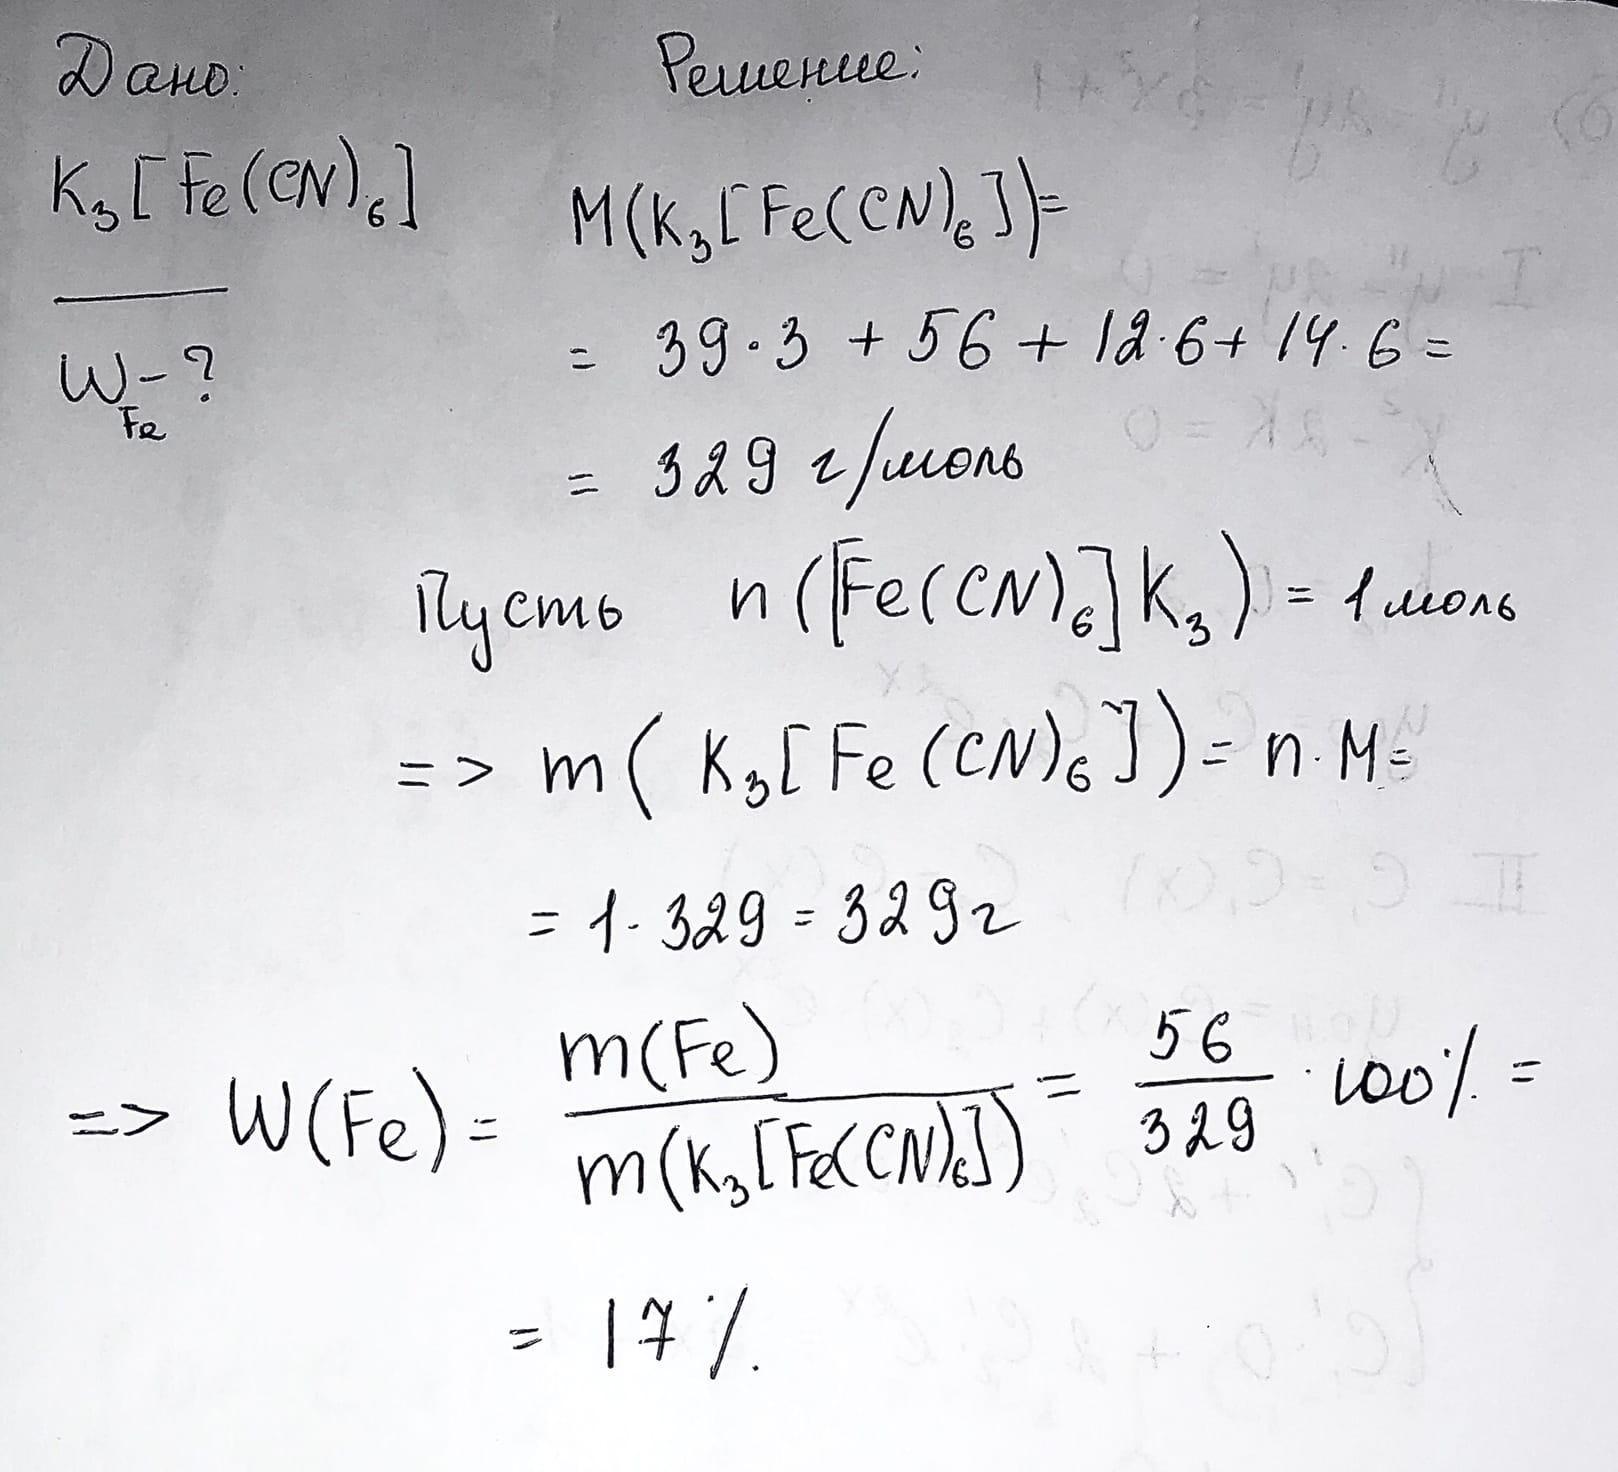 Дано:
K₃[Fe(CN)₆]
W Fe - ?
Решение:
M(K₃[Fe(CN)₆])=
= 39·3 + 56 + 12·6 + 14·6 =
= 329 г/моль
Пусть n([Fe(CN)₆]K₃) = 1 моль
=> m(K₃[Fe(CN)₆]) = n·M =
= 1·329 = 329 г
=> W(Fe) = m(Fe) / m(K₃[Fe(CN)₆]) = 56 / 329 · 100% =
= 17%.